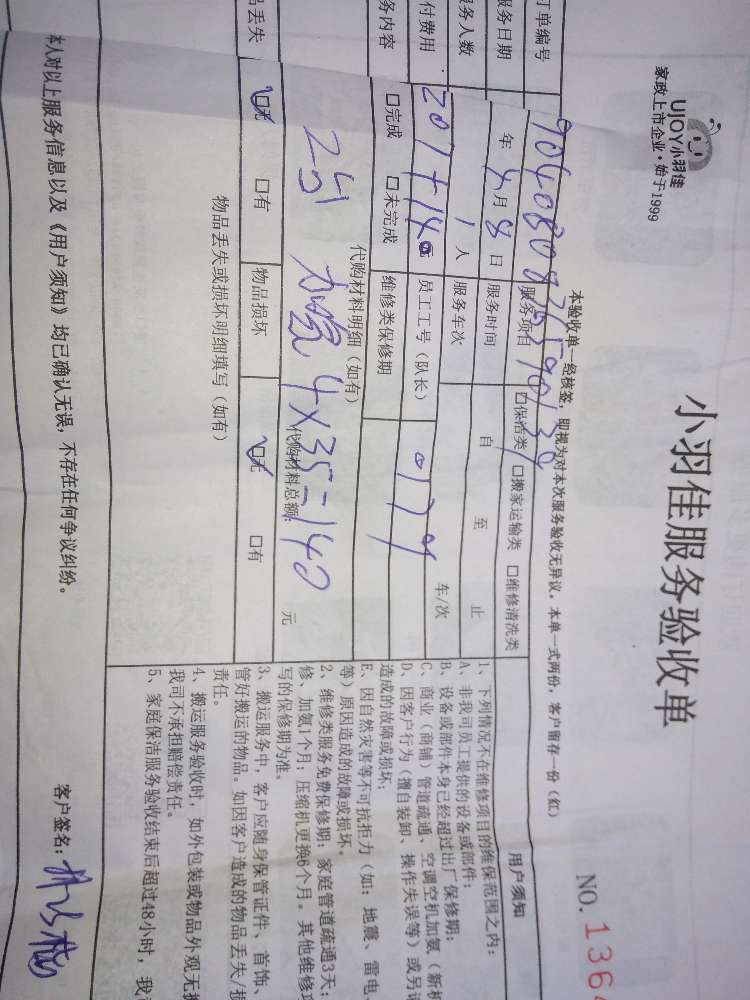 UJOY小羽佳
家政上市企业·始于1999
小羽佳服务验收单
NO. 136
本验收单一经核签，即视为对本次服务验收无异议。本单一式两份，客户留存一份（红）
订单编号
服务项目 □保洁类 □搬家运输类 □维修清洗类
服务日期 年 4月 8日 服务时间 自 至 止
服务人数 1人 服务车次 车/次
付费用 207+140元 员工工号（队长） 0179
务内容 □完成 □未完成 维修类保修期
代购材料明细（如有）
代购材料总额：
4×35=140 元
品丢失 ☑无 □有 物品损坏 ☑无 □有
物品丢失或损坏明细填写（如有）
用户须知
1、下列情况不在维修项目的维保范围之内：
A、非我司员工提供的设备或部件；
B、设备或部件本身已经超过出厂保修期；
C、商业（商铺）管道疏通、空调空机加氨（新机
D、因客户行为（擅自装卸、操作失误等）或另请
造成的故障或损坏；
E、因自然灾害等不可抗拒力（如：地震、雷电、
等）原因造成的故障或损坏。
2、维修类服务免费保修期：家庭管道疏通3天；
修、加氨1个月；压缩机更换6个月。其他维修项
写的保修期为准。
3、搬运服务中，客户应随身保管证件、首饰、
管好搬运的物品。如因客户造成的物品丢失/损
责任。
4、搬运服务验收时，如外包装或物品外观无损
我司不承担赔偿责任。
5、家庭保洁服务验收结束后超过48小时，我
本人对以上服务信息以及《用户须知》均已确认无误，不存在任何争议纠纷。
客户签名：